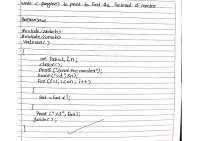 write C program to print to find the factorial of number
#include<stdio.h>
#include<conio.h>
Void main()
{
int fact=1, i, n;
clrscr();
Printf ("Enter the number");
Scanf ("%d", &n);
for (i=1; i<=n; i++)
{
fact = fact * i;
}
Printf ("%d", fact);
getch();
}